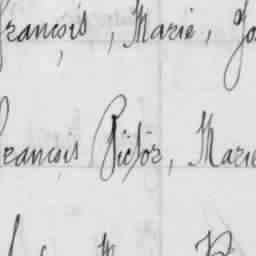 françois, Marie, Jo
françois Victor, Marie